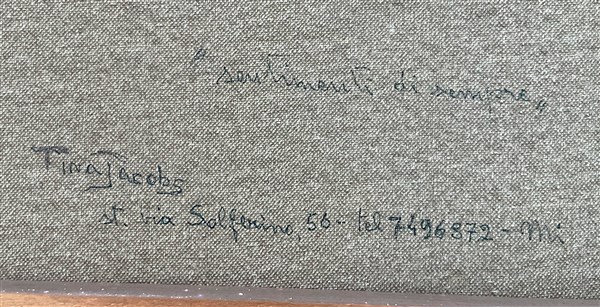 "sentimenti di sempre"
Tina Jacobs
st. via Solferino, 56 - tel 7496872 - Mi